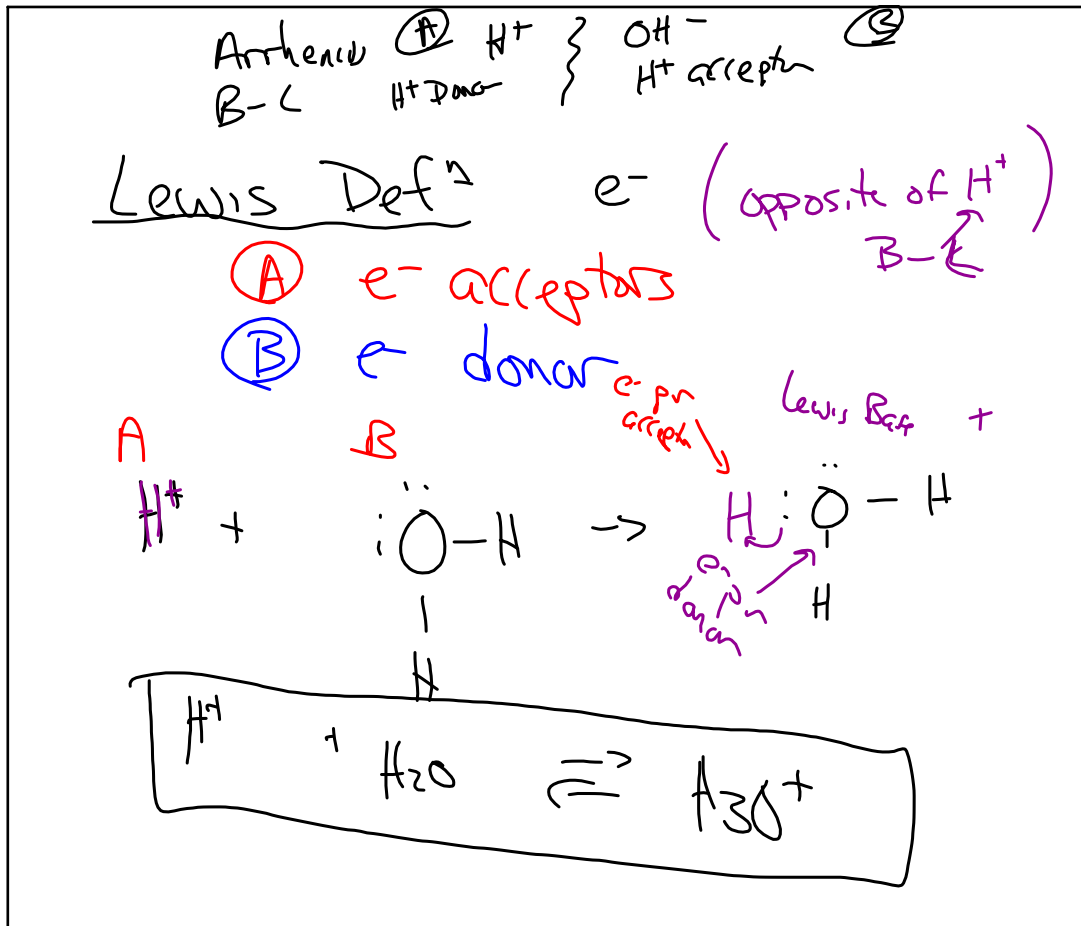 Arrhenius Ⓐ H⁺ } OH⁻ Ⓑ
B-L H⁺ Donor H⁺ acceptor
Lewis Defⁿ e⁻ (opposite of H⁺)
B-L
Ⓐ e⁻ acceptors
Ⓑ e⁻ donor
e⁻ pr
acceptr
Lewis Base +
A B
H⁺ + :Ö-H → H:Ö-H
H H
e⁻ pr
donor
H⁺ + H2O ⇌ H3O⁺